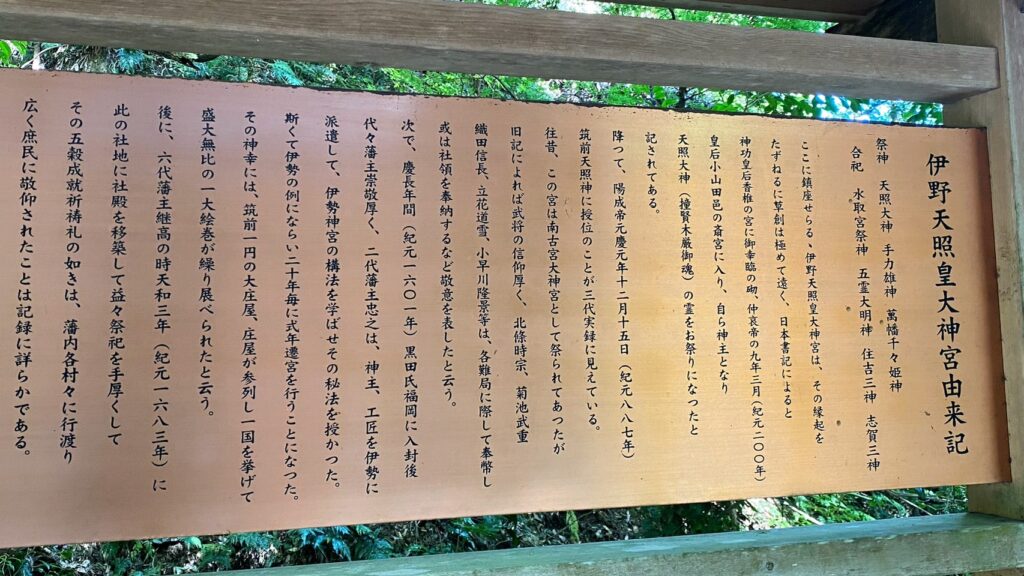 伊野天照皇大神宮由来記
祭神　天照大神　手力雄神　萬幡千々姫神
合祀　水取宮祭神　五霊大明神　住吉三神　志賀三神
ここに鎮座せらるゝ伊野天照皇大神宮は、その縁起を
たずねるに草創は極めて遠く、日本書記によると
神功皇后香椎の宮に御幸臨の砌、仲哀帝の九年三月（紀元二〇〇年）
皇后小山田邑の斎宮に入り、自ら神主となり
天照大神（撞賢木厳御魂）の霊をお祭りになったと
記されてある。
降つて、陽成帝元慶元年十二月十五日（紀元八八七年）
筑前天照神に授位のことが三代実録に見えている。
往昔、この宮は南古宮大神宮として祭られてあつたが
旧記によれば武将の信仰厚く、北條時宗、菊池武重
織田信長、立花道雪、小早川隆景等は、各難局に際して奉幣し
或は社領を奉納するなど敬意を表したと云う。
次で、慶長年間（紀元一六〇一年）黒田氏福岡に入封後
代々藩主崇敬厚く、二代藩主忠之は、神主、工匠を伊勢に
派遣して、伊勢神宮の構法を学ばせその秘法を授かつた。
斯くて伊勢の例にならい二十年毎に式年遷宮を行うことになつた。
その神幸には、筑前一円の大庄屋、庄屋が参列し一国を挙げて
盛大無比の一大絵巻が繰り展べられたと云う。
後に、六代藩主継高の時天和三年（紀元一六八三年）に
此の社地に社殿を移築して益々祭祀を手厚くして
その五穀成就祈祷礼の如きは、藩内各村々に行渡り
広く庶民に敬仰されたことは記録に詳らかである。